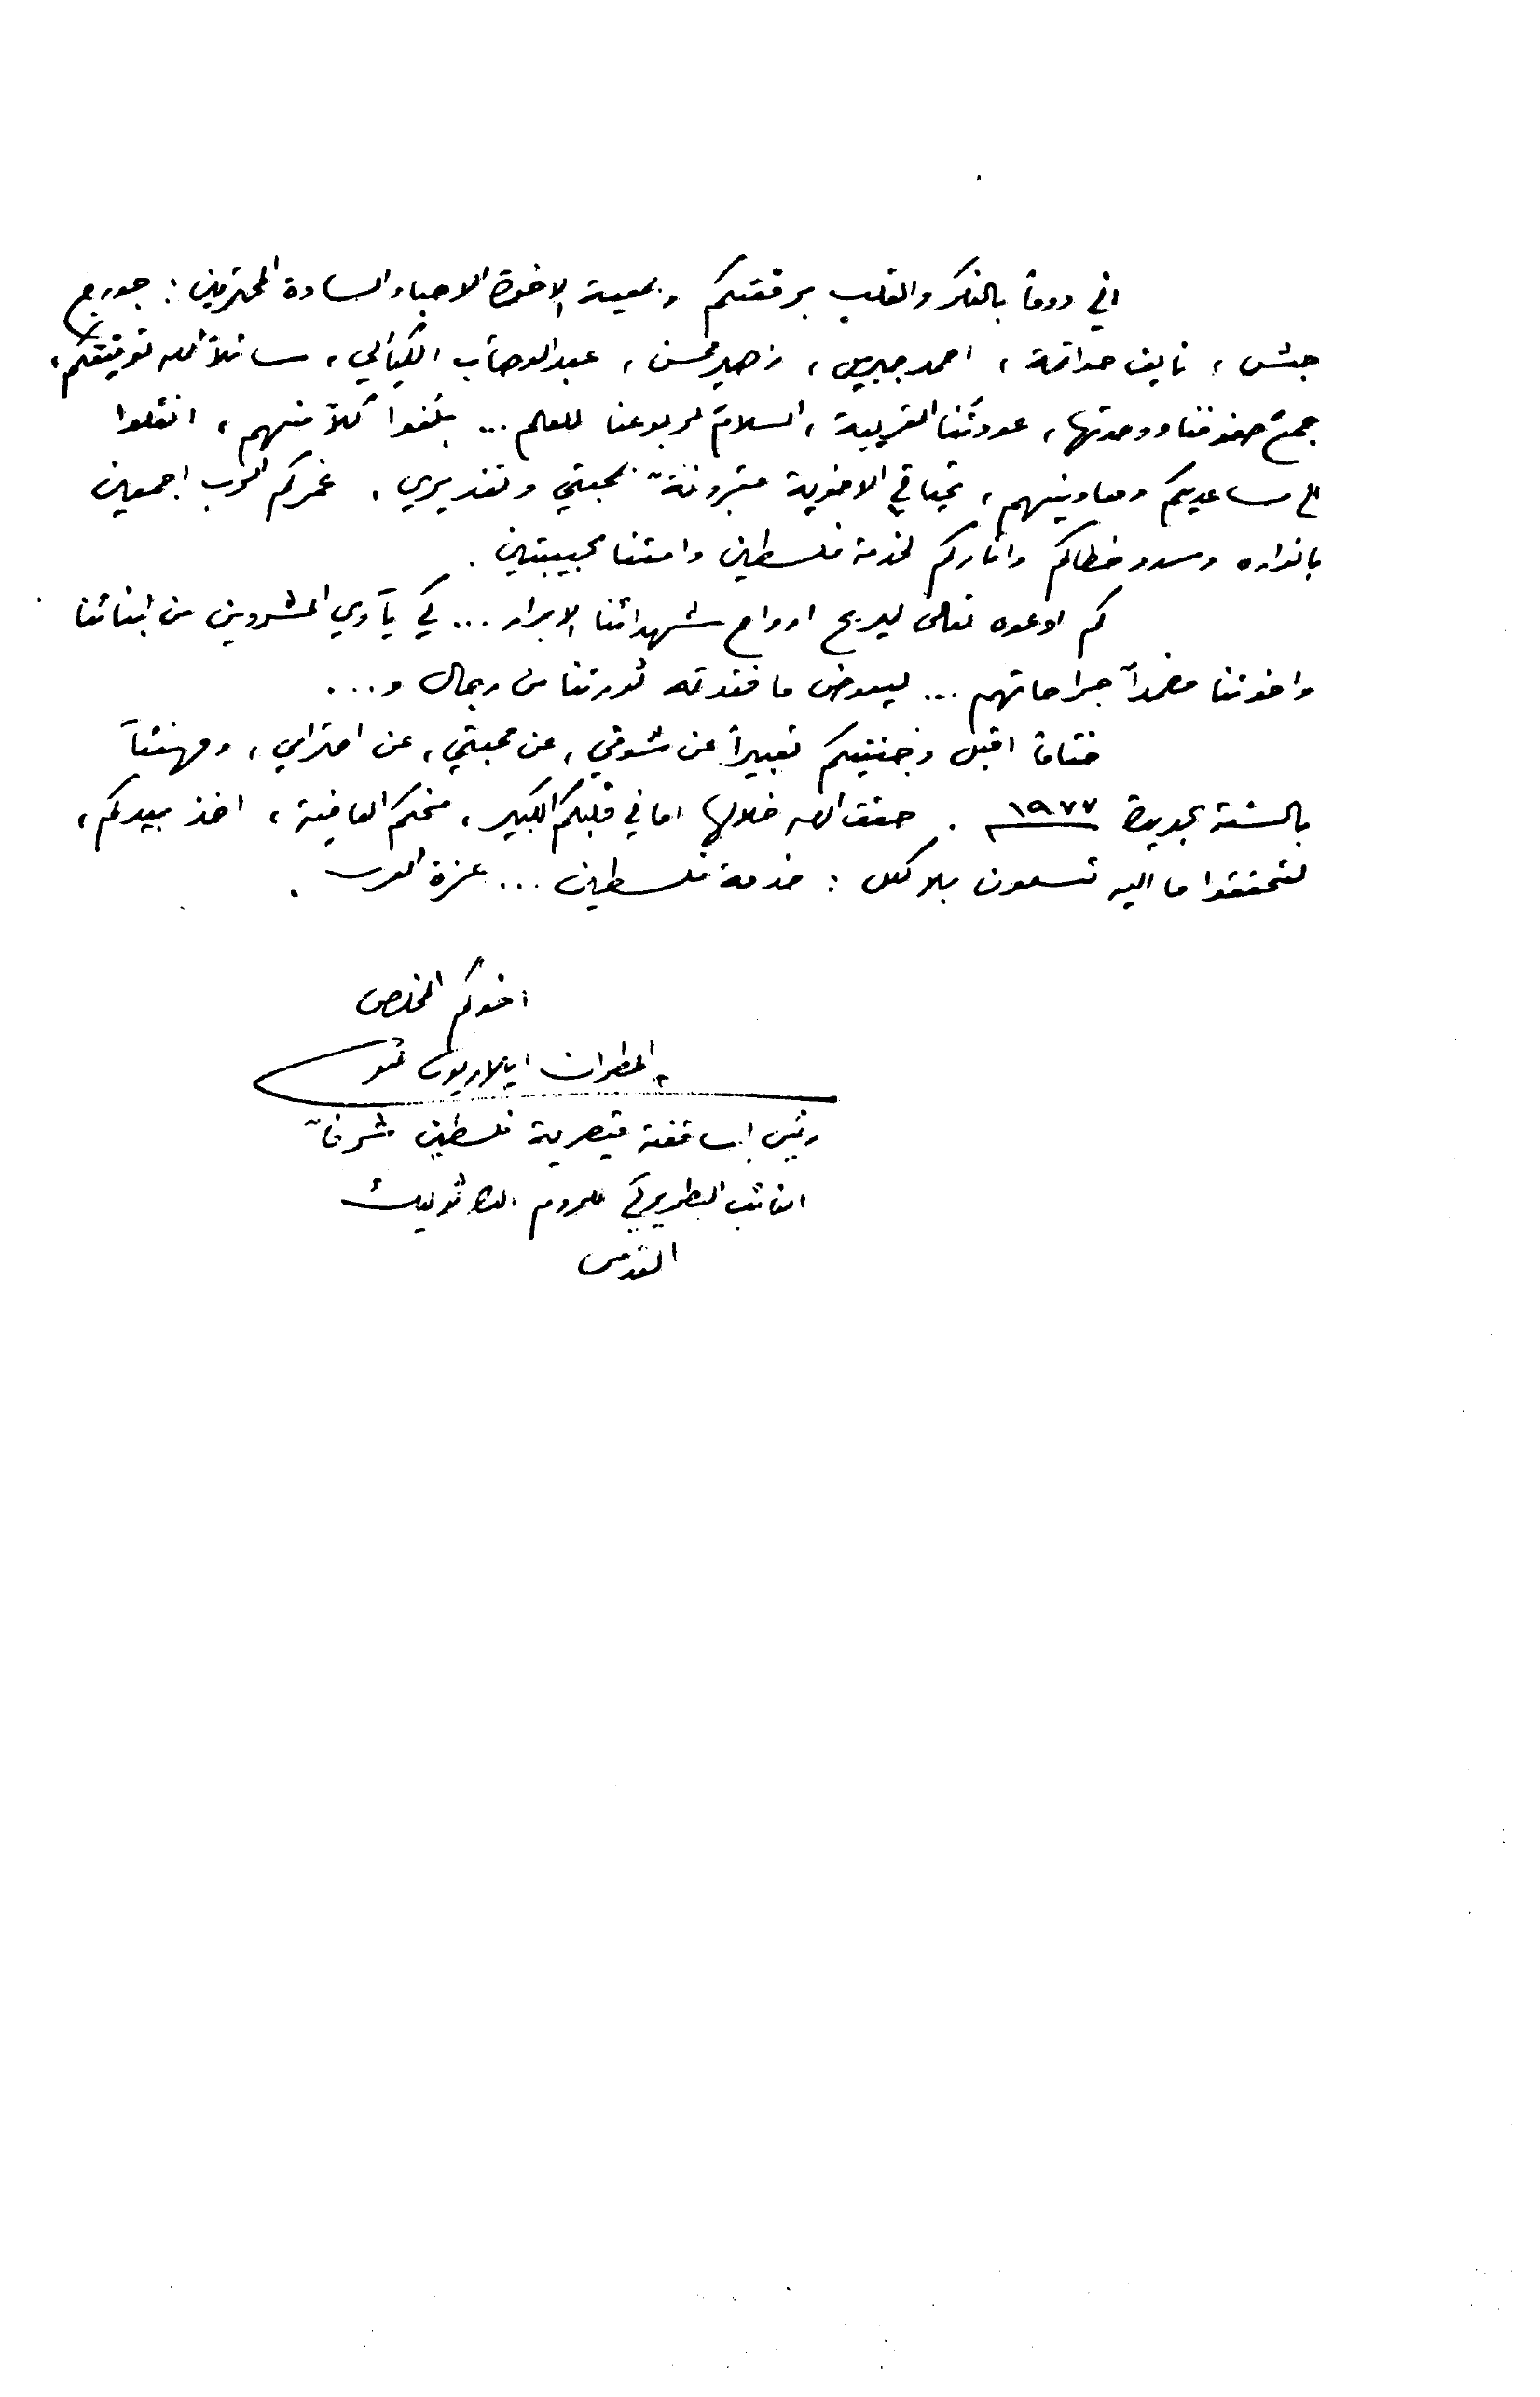 اني دوماً بالفكر والقلب برفقتكم وبمعية الاخوة الاحباء السادة المحترمين : جورج
حبش ، نايف حواتمة ، احمد جبريل ، زهير محسن ، عبد الوهاب الكيالي ، سائلاً الله توفيقكم ،
جمع صفوفنا ووحدتها ، عودتنا القريبة ، السلام لربوعنا للعالم ... بلغوا كلاً منهم ، انقلوا
الى مساعديكم ومعاونيهم ، تحياتي الاخوية مقرونةً بمحبتي وتقديري . غمركم الرب اجمعين
بانواره وسدد خطاكم واناركم لخدمة فلسطين وامتنا الحبيبتين .
كم ادعوه تعالى ليريح ارواح شهدائنا الابرار ... كي يآوي المشردين من ابنائنا
واخوتنا مضمداً جراحاتهم ... ليعوض ما فقدته ثورتنا من رجال و ...
ختاماً اقبل وجنتيكم تعبيراً عن شوقي ، عن محبتي ، عن احترامي ، ومهنئاً
بالسنة الجديدة ١٩٧٧ . حقق الله خلالها اماني قلبكم الكبير ، منحكم العافية ، اخذ بيدكم ،
لتحققوا ما اليه تسعون بلا كلل : خدمة فلسطين ... عزة العرب .
اخوكم المخلص
المطران ايلاريون كبوجي
رئيس اساقفة قيصرية فلسطين شرفاً
النائب البطريركي للروم الكاثوليك
القدس